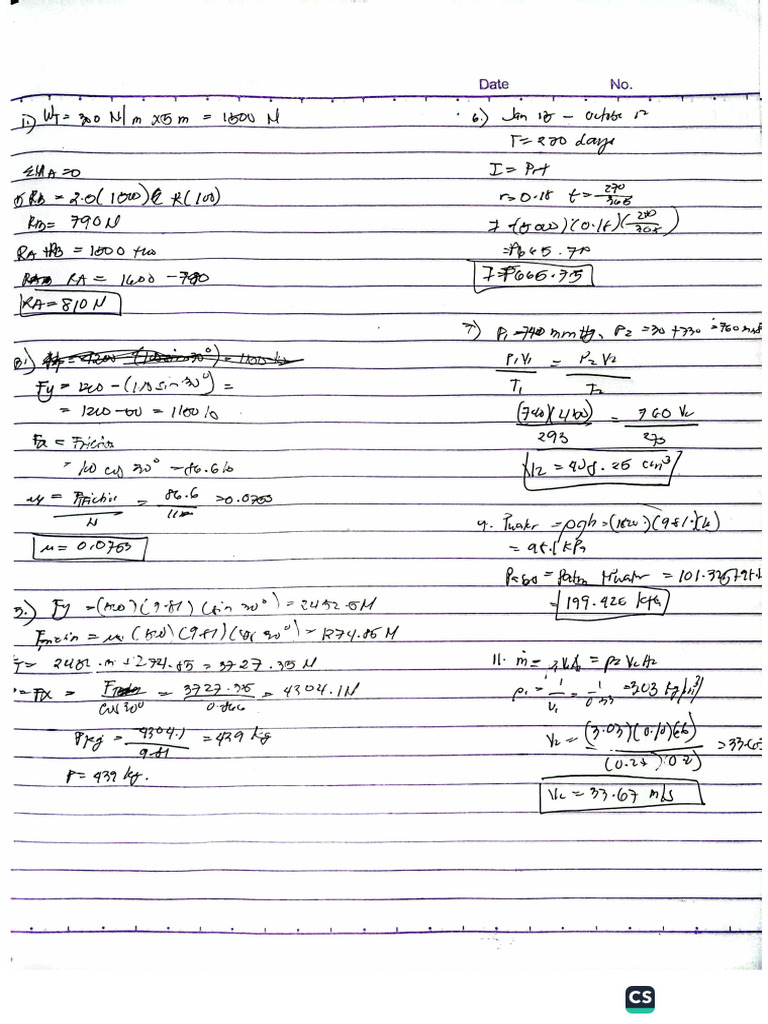 Date No.
1.) W_T = 300 N/m x 5 m = 1500 N
ΣM_A = 0
5 R_B = 2.5(1500) + (100)
R_B = 790 N
R_A + R_B = 1500 + 100
R_A = 1600 - 790
R_A = 810 N
Fy = 1200 - (100 sin 30°) =
= 1200 - 50 = 1150 lb
Fx = Friction
= 100 cos 30° = 86.6 lb
μ = Friction / N = 86.6 / = 0.0753
μ = 0.0753
3.) Fy = (500)(9.81)(sin 30°) = 2452.5 N
Friction = (500)(9.81)(cos 30°) = 1274.85 N
T = + 1274.85 = 3727.35 N
= Fx = / cos 30° = 3727.35 / 0.866 = 4304.1 N
P kg = 4304.1 / 9.81 = 439 kg
P = 439 kg.
6.) Jan 18 - October 12
T = 270 days
I = Prt
r = 0.18 t = 270/365
(0.18)(270/365)
= ₱665.75
I = ₱665.75
7.) P1 = 740 mmHg, P2 = 30 + 730 = 760 mmHg
P1V1 / T1 = P2V2 / T2
(740)(400) / 293 = 760 V2 / 273
V2 = 408.25 cm³
9. Pwater = ρgh = (9.81)
= 98.1 kPa
Pabs = Patm + Pwater = 101.325 + 98.1
= 199.425 kPa
11. ṁ = = ρ2 V2 A2
ρ1 = 1/V1 = 1/0.33 = 3.03 kg/m³
V2 = (3.03)(0.10)(66) / (0.2) = 33.67
V2 = 33.67 m/s
CS